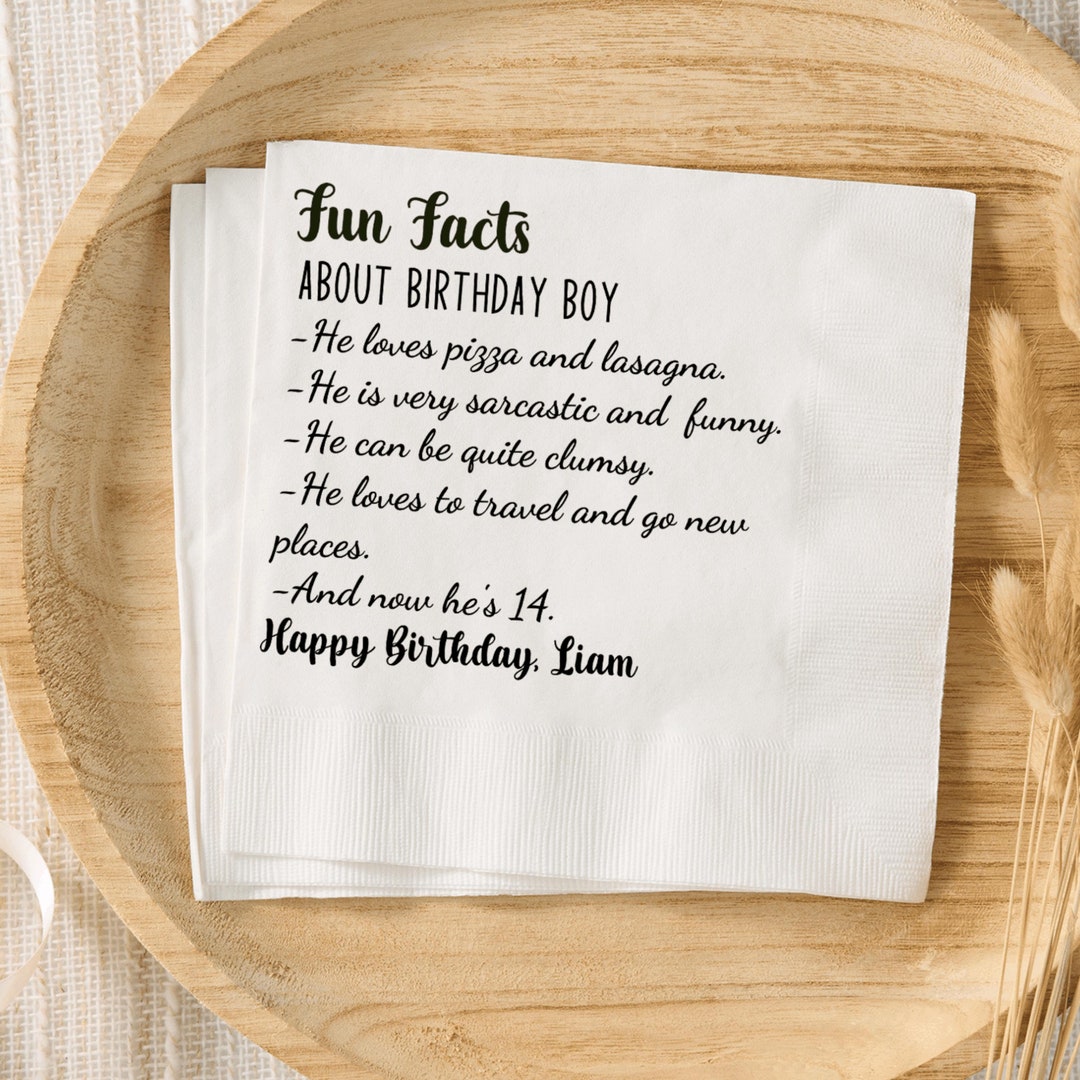 Fun Facts
ABOUT BIRTHDAY BOY
-He loves pizza and lasagna.
-He is very sarcastic and  funny.
-He can be quite clumsy.
-He loves to travel and go new
places.
-And now he's 14.
Happy Birthday, Liam